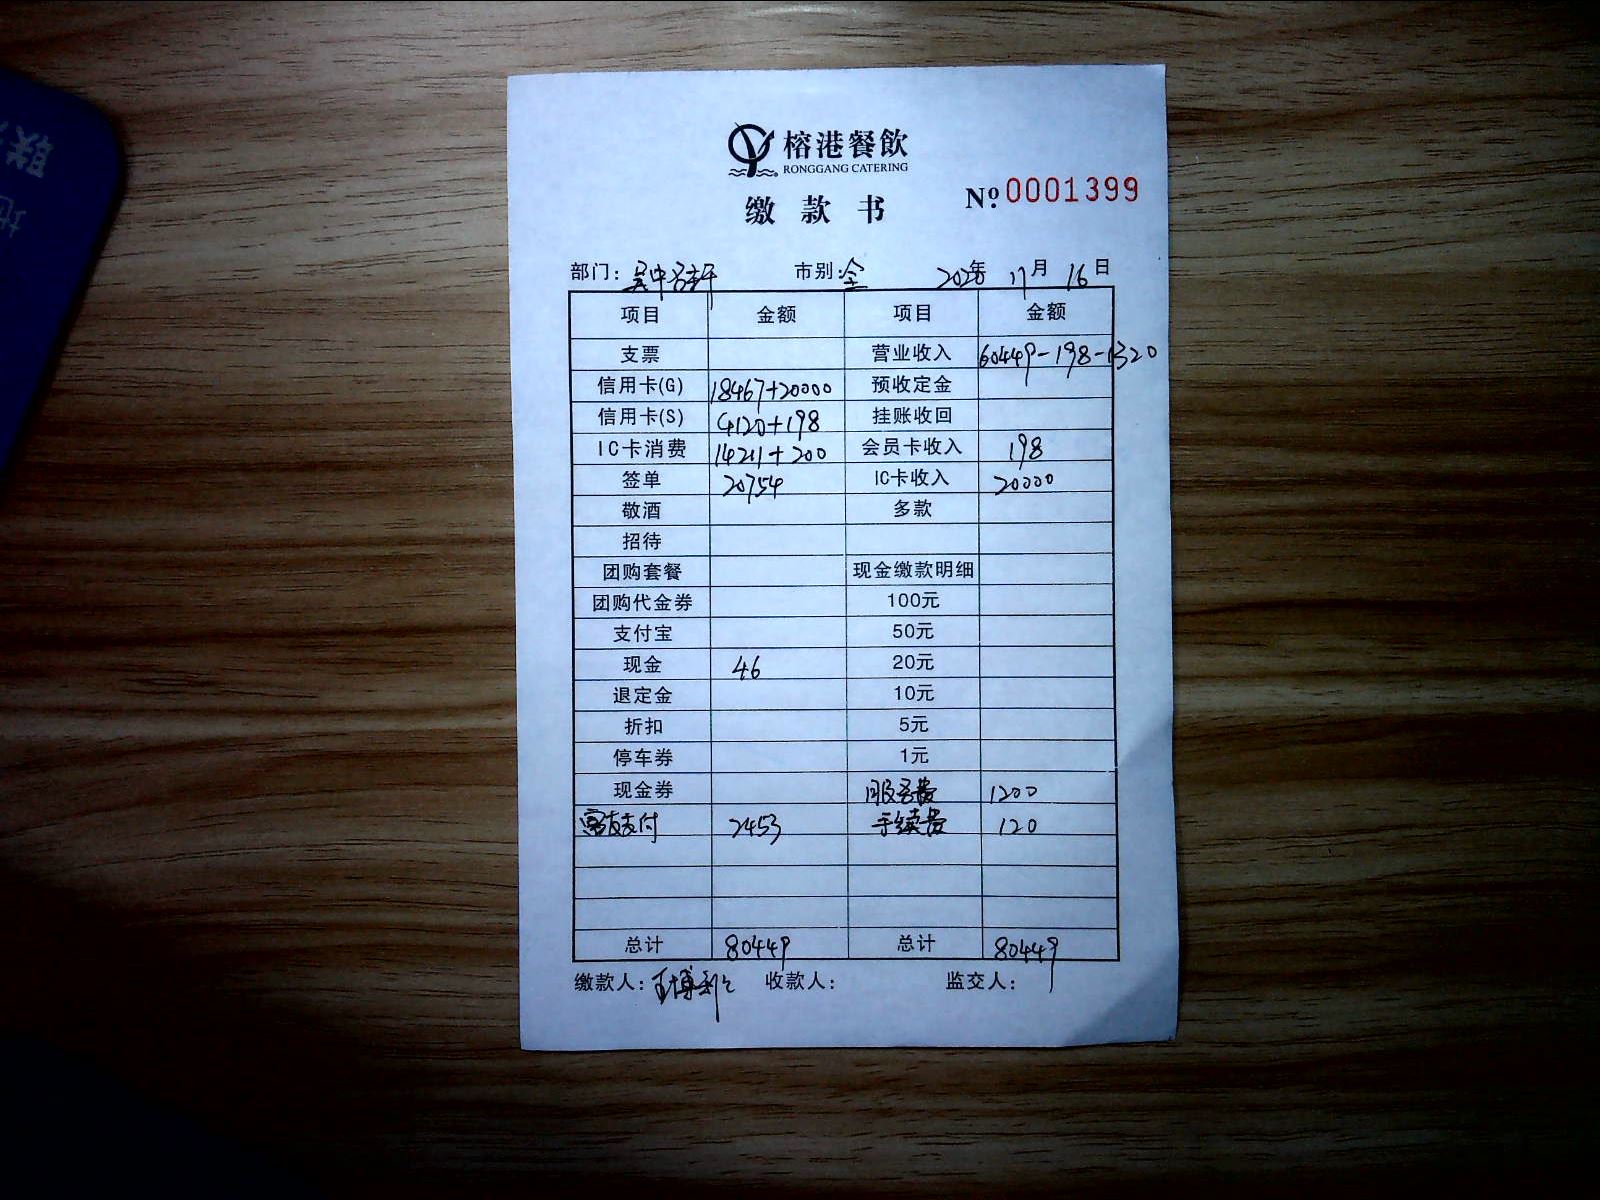 榕港餐飲
RONGGANG CATERING
缴款书
Nº 0001399
部门: 吴中名轩 市别: 全 2020年 11月 16日
项目 金额 项目 金额
支票 营业收入 60449-198-1320
信用卡(G) 18467+20000 预收定金
信用卡(S) 4120+198 挂账收回
IC卡消费 14211+200 会员卡收入 198
签单 20754 IC卡收入 20000
敬酒 多款
招待
团购套餐 现金缴款明细
团购代金券 100元
支付宝 50元
现金 46 20元
退定金 10元
折扣 5元
停车券 1元
现金券 服务费 1200
支付 2453 手续费 120
总计 80449 总计 80449
缴款人: 收款人: 监交人: